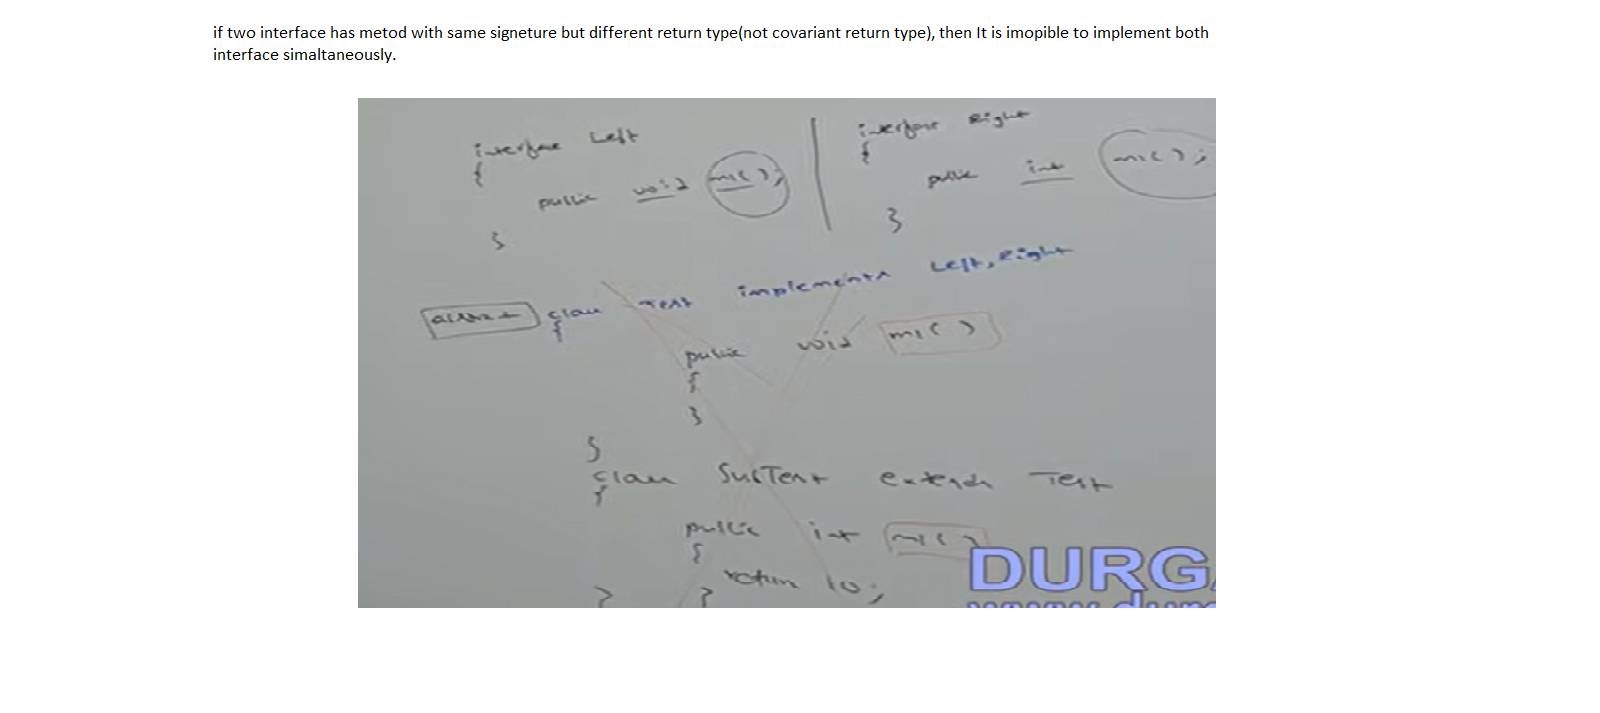 if two interface has metod with same signeture but different return type(not covariant return type), then It is imopible to implement both
interface simaltaneously.
interface Left
{
public void m1();
}
interface Right
{
public int m1();
}
class Test implements Left, Right
{
public void m1()
{
}
}
class SubTest extends Test
{
public int m1()
{
return 10;
}
}
DURG